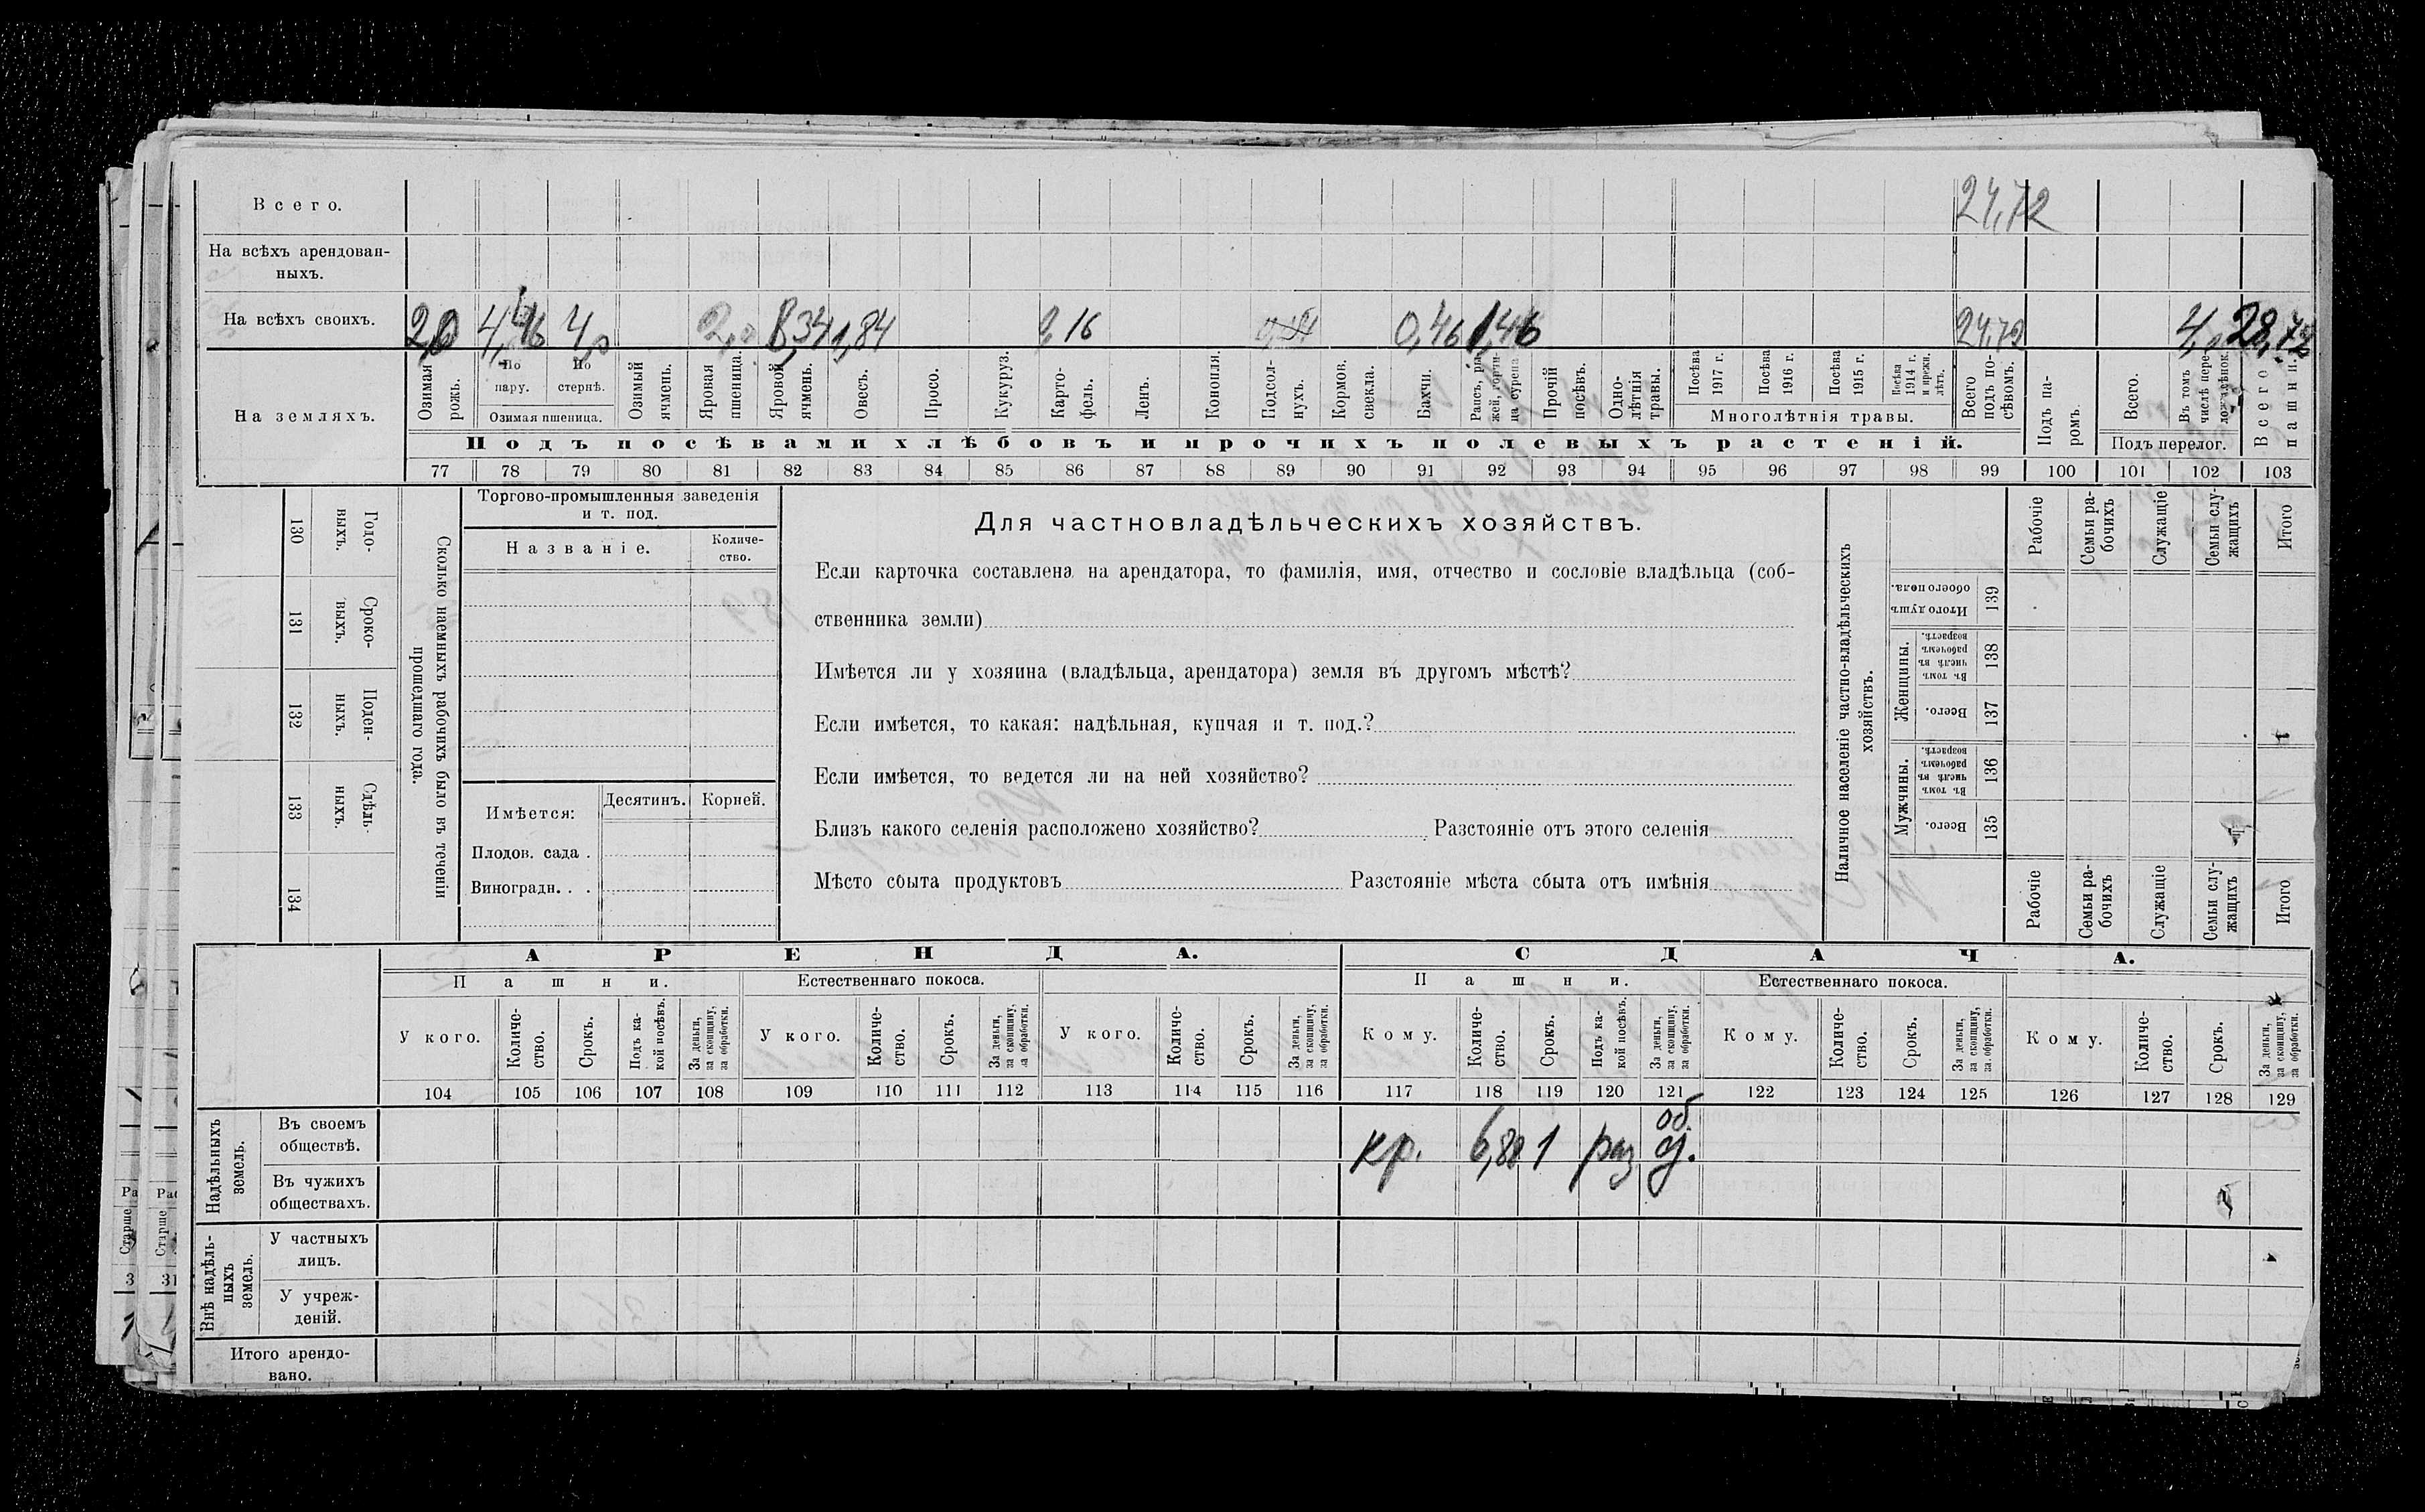 Всего.
24,72
На всѣхъ арендован-
ныхъ.
На всѣхъ своихъ. 2,0 4,46 4,0 2,0 8,34 1,84 2,16 0,46 1,46 24,72 4,0 28,72
На земляхъ.
Озимая рожь.
По пару.
По стернѣ.
Озимая пшеница.
Озимый ячмень.
Яровая пшеница.
Яровой ячмень.
Овесъ.
Просо.
Кукуруз.
Карто-
фель.
Ленъ.
Конопля.
Подсол-
нухъ.
Кормов.
свекла.
Бахчи.
Рапсъ, ры-
жей, горчи-
ца сурепа.
Прочій
посѣвъ.
Одно-
лѣтнія
травы.
Посѣва
1917 г.
Посѣва
1916 г.
Посѣва
1915 г.
Посѣва
1914 г.
и прежн.
лѣтъ.
Многолѣтнія травы.
Всего
подъ по-
сѣвомъ.
Подъ па-
ромъ.
Всего.
Въ томъ
числѣ пере-
лож.
Подъ перелог.
Всего
пашни.
Подъ посѣвами хлѣбовъ и прочихъ полевыхъ растеній.
77 78 79 80 81 82 83 84 85 86 87 88 89 90 91 92 93 94 95 96 97 98 99 100 101 102 103
130
Годо-
выхъ.
131
Сроко-
выхъ.
132
Поден-
ныхъ.
133
Сдѣль-
ныхъ.
134
Сколько наемныхъ рабочихъ было въ теченіи
прошедшаго года.
Торгово-промышленныя заведенія
и т. под.
Названіе.
Количе-
ство.
Имѣется:
Десятинъ.
Корней.
Плодов. сада .
Виноградн. . .
Для частновладѣльческихъ хозяйствъ.
Если карточка составлена на арендатора, то фамилія, имя, отчество и сословіе владѣльца (соб-
ственника земли)
Имѣется ли у хозяина (владѣльца, арендатора) земля въ другомъ мѣстѣ?
Если имѣется, то какая: надѣльная, купчая и т. под.?
Если имѣется, то ведется ли на ней хозяйство?
Близъ какого селенія расположено хозяйство? Разстояніе отъ этого селенія
Мѣсто сбыта продуктовъ Разстояніе мѣста сбыта отъ имѣнія
Наличное населеніе частно-владѣльческихъ
хозяйствъ.
Рабочіе
Семьи ра-
бочихъ
Служащіе
Семьи слу-
жащихъ
Итого
Итого душъ
обоего пола.
139
Женщины.
Въ томъ
числѣ въ
рабочемъ
возрастѣ.
138
Всего.
137
Мужчины.
Въ томъ
числѣ въ
рабочемъ
возрастѣ.
136
Всего.
135
Рабочіе
Семьи ра-
бочихъ
Служащіе
Семьи слу-
жащихъ
Итого
АРЕНДА. СДАЧА.
Пашни. Естественнаго покоса. Пашни. Естественнаго покоса.
У кого.
Количе-
ство.
Срокъ.
Подъ ка-
кой посѣвъ.
За деньги,
за скопщину,
за обработки.
У кого.
Количе-
ство.
Срокъ.
За деньги,
за скопщину,
за обработки.
У кого.
Количе-
ство.
Срокъ.
За деньги,
за скопщину,
за обработки.
Кому.
Количе-
ство.
Срокъ.
Подъ ка-
кой посѣвъ.
За деньги,
за скопщину,
за обработки.
Кому.
Количе-
ство.
Срокъ.
За деньги,
за скопщину,
за обработки.
Кому.
Количе-
ство.
Срокъ.
За деньги,
за скопщину,
за обработки.
104 105 106 107 108 109 110 111 112 113 114 115 116 117 118 119 120 121 122 123 124 125 126 127 128 129
Надѣльныхъ
земель.
Въ своемъ
обществѣ.
об.
кр. 6,80 1 раз
Въ чужихъ
обществахъ.
Внѣ надѣль-
ныхъ
земель.
У частныхъ
лицъ.
У учреж-
деній.
Итого арендо-
вано.
Старше
Старше
31